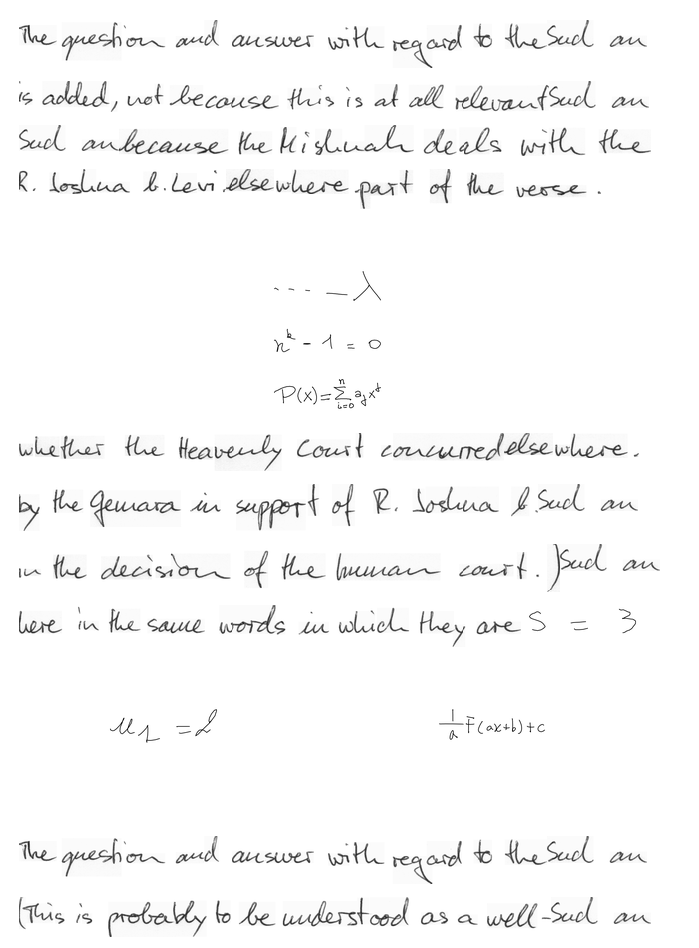 The question and answer with regard to the Sud an
is added, not because this is at all relevant Sud an
Sud an because the Mishnah deals with the
R. Joshua b. Levi elsewhere part of the verse.
--- — λ
n^k - 1 = 0
P(x)=∑_{i=0}^{n} a_j x^j
whether the Heavenly Court concurred elsewhere.
by the Gemara in support of R. Joshua b. Sud an
in the decision of the human court.) Sud an
here in the same words in which they are S = 3
u_1 = 2 1/a F(ax+b)+c
The question and answer with regard to the Sud an
(This is probably to be understood as a well-Sud an